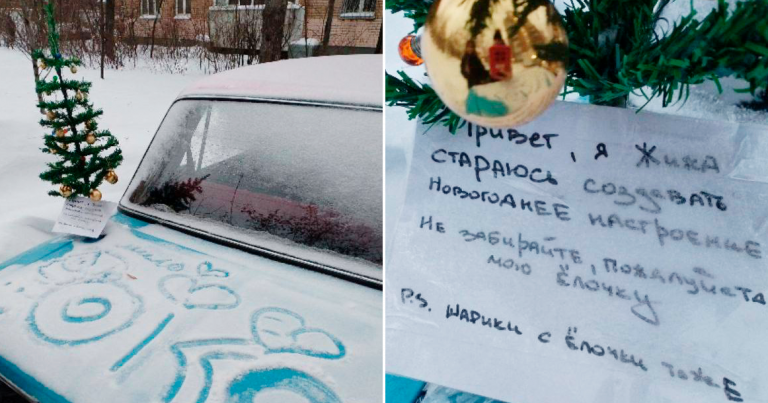 Привет, я Жика
стараюсь создавать
новогоднее настроение
Не забирайте, пожалуйста
мою ёлочку
P.S. шарики с ёлочки тоже